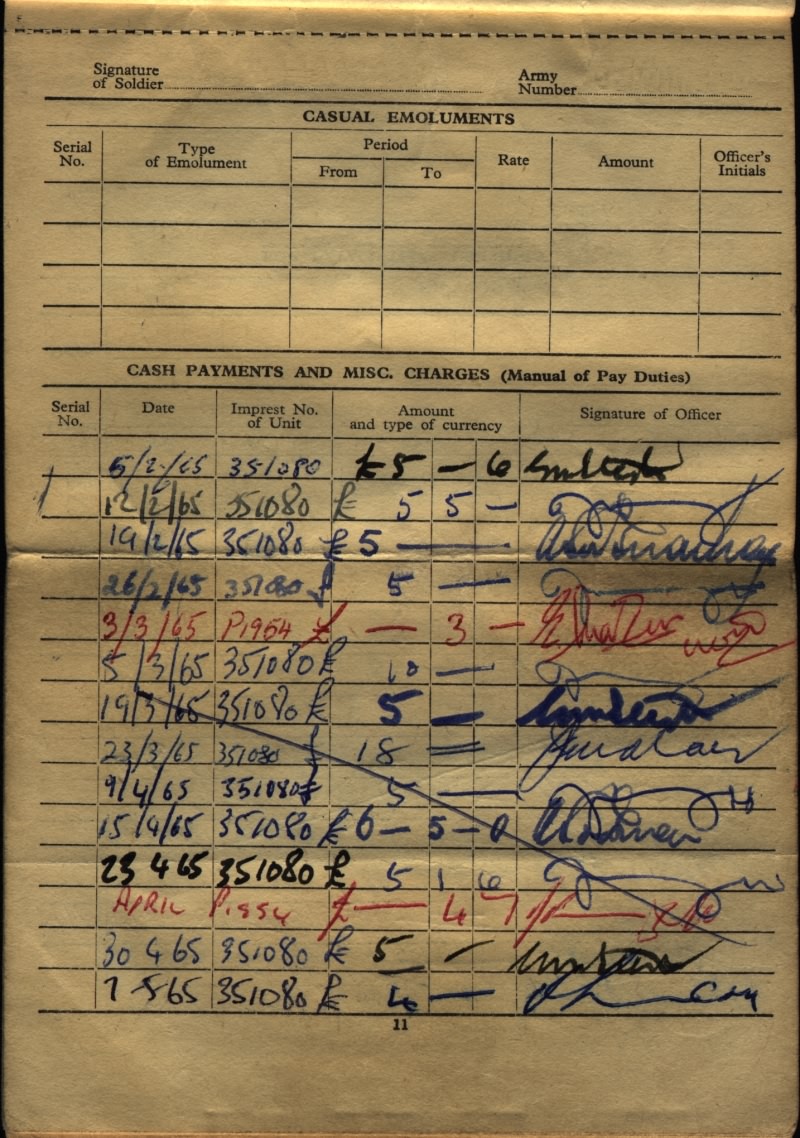 Signature
of Soldier
Army
Number
CASUAL EMOLUMENTS
Serial No. Type of Emolument Period From To Rate Amount Officer's Initials
CASH PAYMENTS AND MISC. CHARGES (Manual of Pay Duties)
Serial No. Date Imprest No. of Unit Amount and type of currency Signature of Officer
5/2/65 351080 £5 — 6
12/2/65 351080 £ 5 5 —
19/2/65 351080 £ 5 —
26/2/65 351080 £ 5 —
3/3/65 P1954 £ — 3 —
5/3/65 351080 £ 10 —
19/3/65 351080 £ 5 —
23/3/65 351080 £ 18 =
9/4/65 351080 £ 5 —
15/4/65 351080 £ 6 — 5 — 0
23 4 65 351080 £ 5 1 6
APRIL £ — 4 7
30 4 65 351080 £ 5 —
7 5 65 351080 £ 4 —
11